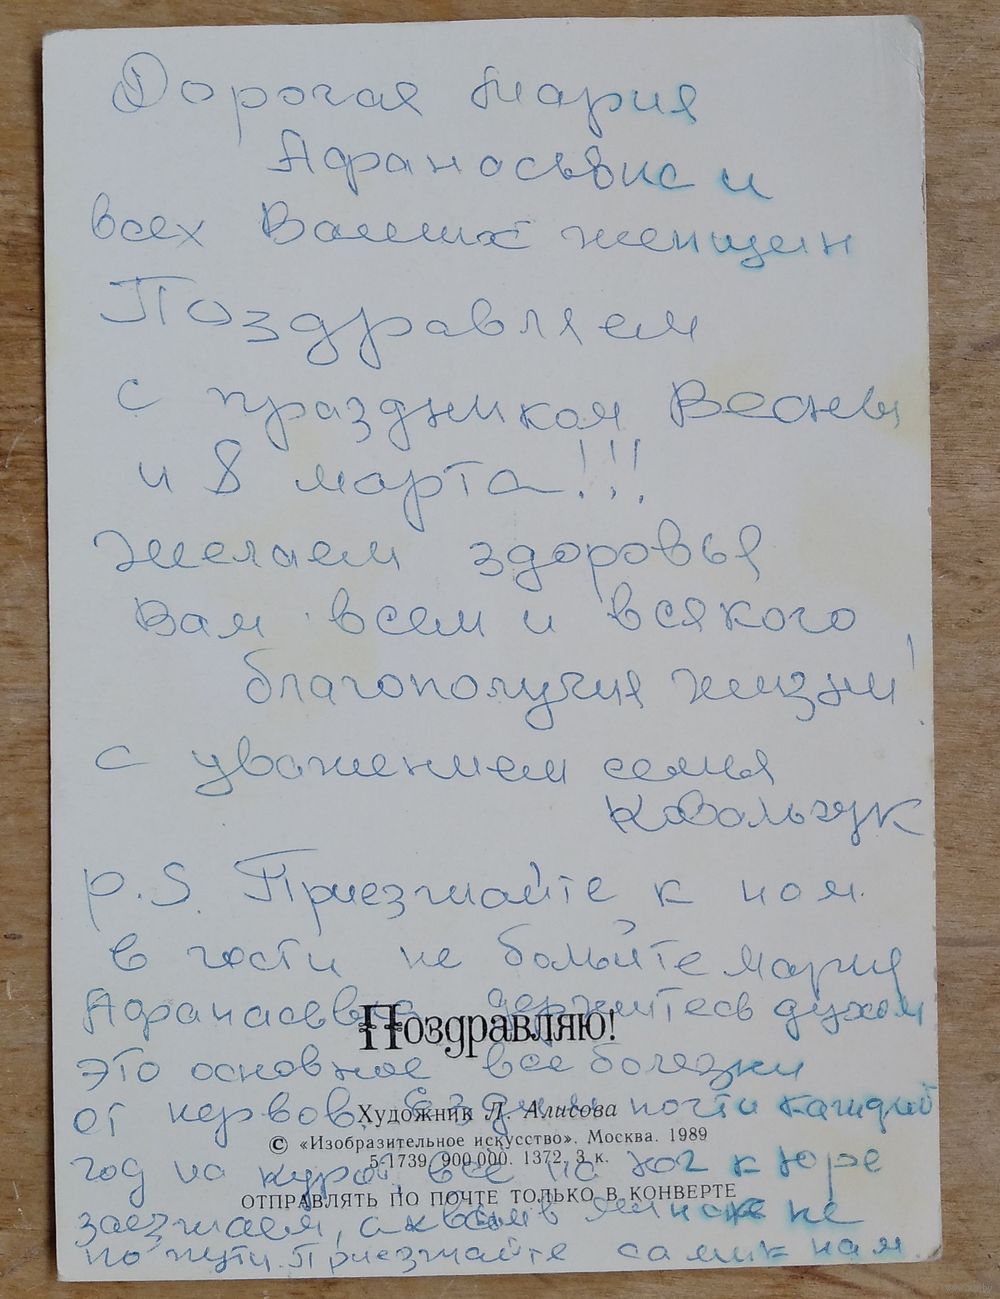 Дорогая Мария
Афанасьевна и
всех Ваших женщин
Поздравляем
с праздником Весны
и 8 марта!!!
желаем здоровья
Вам всем и всякого
благополучия жизни!
с уважением семья
Ковальчук
P.S. Приезжайте к нам
в гости не болейте Мария
Афанасьевна держитесь духом
Поздравляю!
это основное все болезни
от нервов. Ездим почти каждый
Художник Л. Алисова
© «Изобразительное искусство». Москва. 1989
5-1739. 900 000. 1372. 3 к.
год на курорт, все на юг к Юре
ОТПРАВЛЯТЬ ПО ПОЧТЕ ТОЛЬКО В КОНВЕРТЕ
заезжаем, а к Вам в Минске не
по пути. Приезжайте сами к нам.